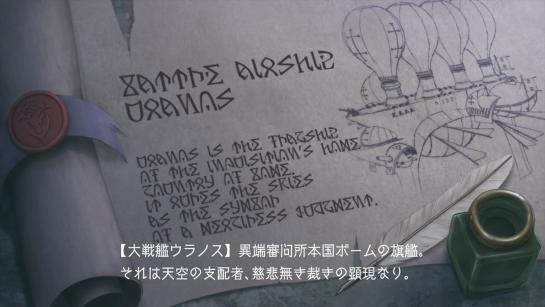 BATTLE AIRSHIP
URANUS
URANUS IS THE FLAGSHIP
OF THE INQUISITION'S HOME
COUNTRY OF BOME.
IT RULES THE SKIES
AS THE SYMBOL
OF A MERCILESS JUDGMENT.
【大戦艦ウラノス】異端審問所本国ボームの旗艦。
それは天空の支配者、慈悲無き裁きの顕現なり。